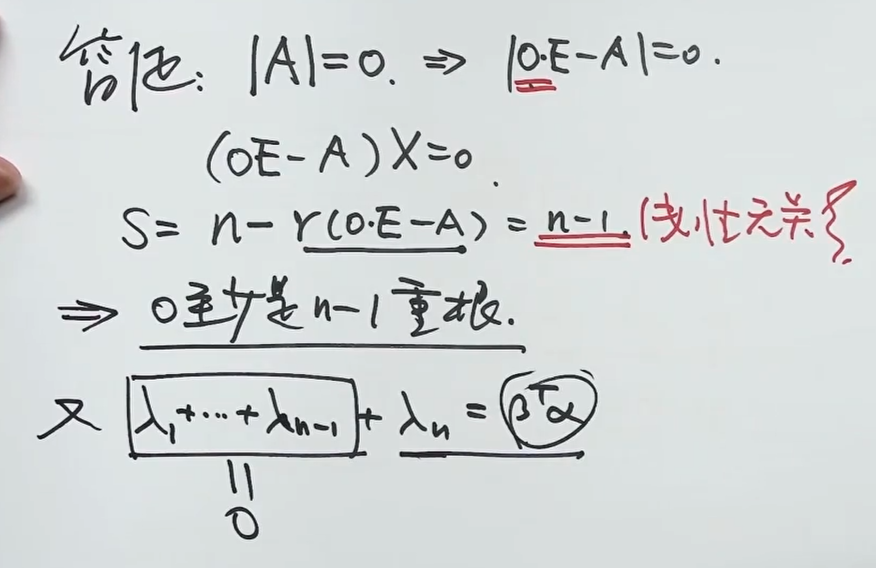 |A|=0. ⇒ |0·E-A|=0.
(0E-A)X=0.
S= n-r(0·E-A) = n-1. 线性无关
⇒ 0至少是n-1重根.
又 λ₁+···+λₙ₋₁ + λₙ = βᵀα
||
0